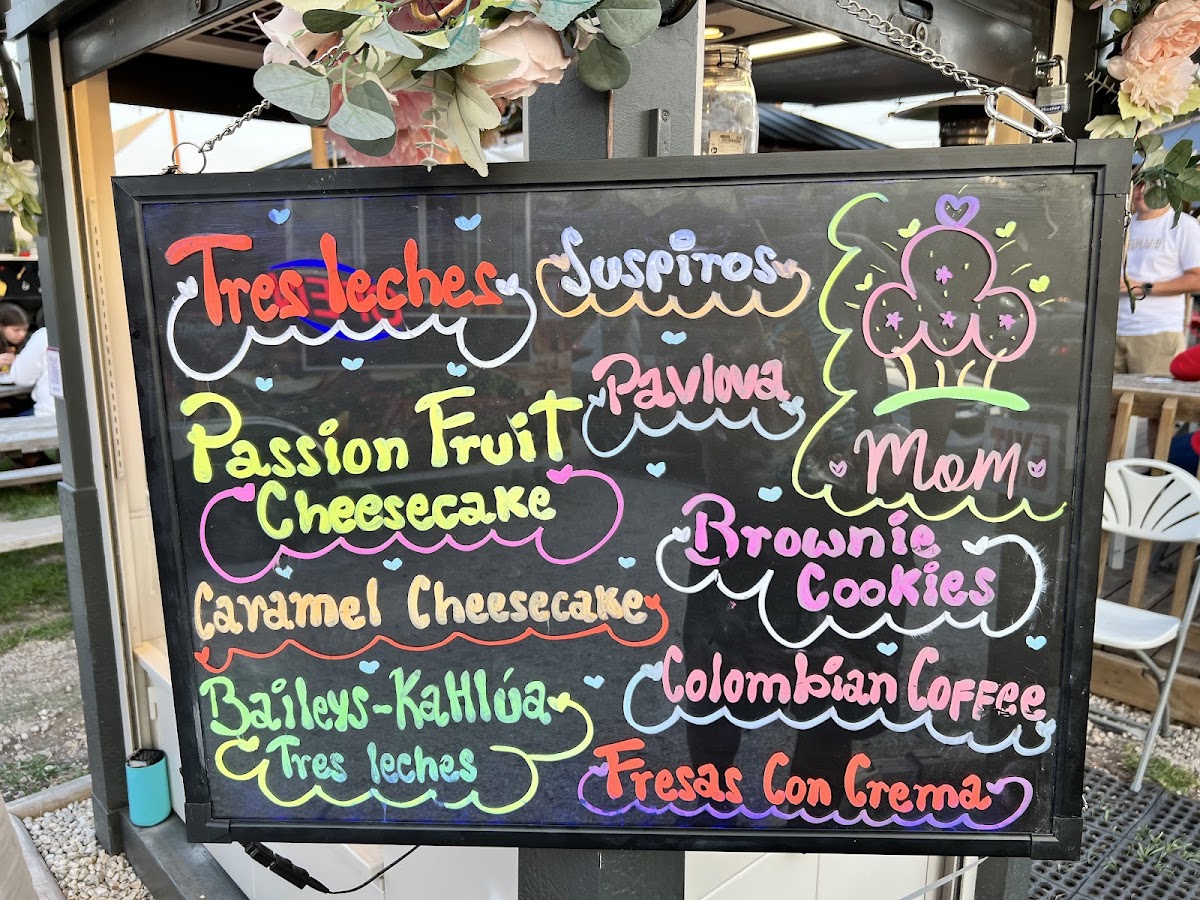 Tres leches
Passion Fruit
Cheesecake
Caramel Cheesecake
Baileys-Kahlúa
Tres leches
Suspiros
Pavlova
Mom
Brownie
Cookies
Colombian Coffee
Fresas Con Crema